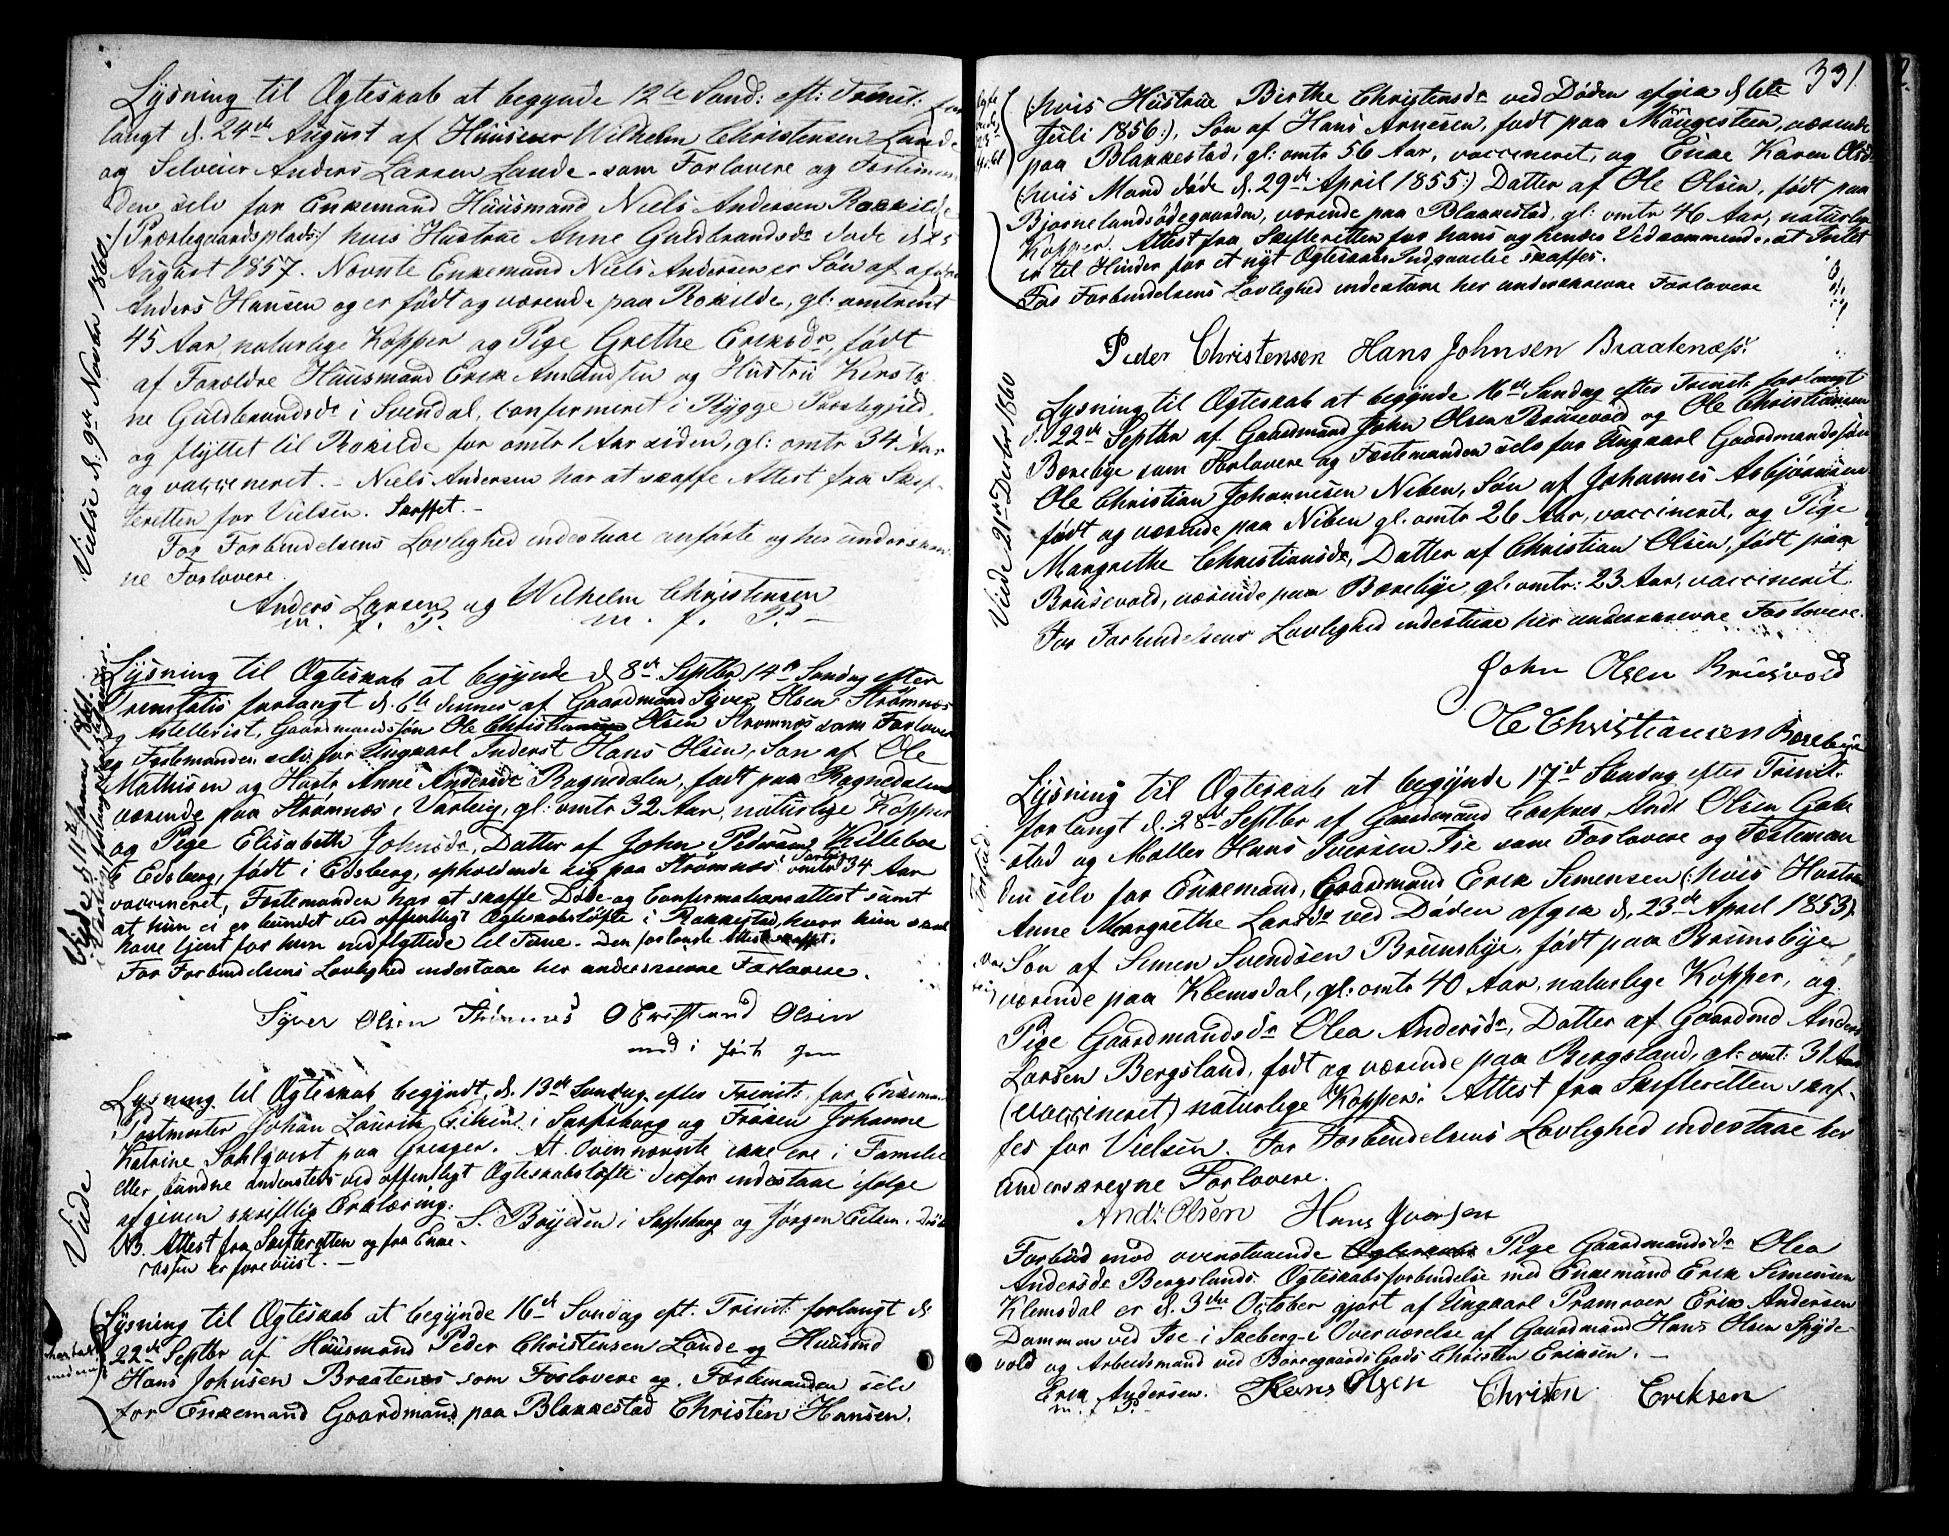 Lysning til Ægteskab at begynde 12te Sønd: eft: Trinit: for-
langt d. 24de August af Huuseier Wilhelm Christensen Lande
og Selveier Anders Larsen Lande som Forlovere og Festeman-
den selv for Enkemand Huusmand Niels Andersen Rokkilde
(Præstegaardsplads:) hvis Hustrue Anne Guldbrandsdr døde d. 25
August 1857. Nævnte Enkemand Niels Andersen er Søn af afdøde
Anders Hansen og er født og værende paa Rokilde, gl: omtrent
45 Aar naturlige Kopper og Pige Grethe Eriksdr, født
af Forældre Huusmand Erik Amundsen og Hustru Kersti-
ne Guldbrandsdr i Svendal, confirmeret i Rygge Præstegjeld,
og flyttet til Rokilde for omtr 1 Aar siden, gl: omtr 34 Aar
og vaccineret. - Niels Andersen har at skaffe Attest fra Skif-
teretten før Vielsen. Skaffet. -
For Forbindelsens Lovlighed indestaae anførte og her underskrev-
ne Forlovere.
Anders Larsen og Wilhelm Christensen
m. f. P. m. f. P.
Vielse d. 9de Novbr 1860.
Lysning til Ægteskab at begynde d. 8de Septbr 14de Søndag efter
Trinitatis forlangt d. 6te dennes af Gaardmand Syver Olsen Strømnes
og Gaardmandssøn Ole Christian Olsen Strømnes som Forlovere
og Festemanden selv for Ungkarl Inderst Hans Olsen, Søn af Ole
Mathisen og Hustr Anne Andersdr Ragnedalen, født paa Ragnedalen
værende paa Strømnæs i Varteig, gl: omtr 32 Aar, naturlige Kopper
og Pige Elisabeth Johnsdr, Datter af John Pedersen Killebøe
i Edsberg, født i Edsberg, opholdende sig paa Strømnæs i Varteig omtr 34 Aar
vaccineret, Festemanden har at skaffe Døbe- og Confirmationsattest samt
at hun ei er bundet ved offentligt Ægteskabsløfte i Rakkestad, hvor hun skal
have tjent før hun indflyttede til Tune. Den forlangte Attest skaffet.
For Forbindelsens Lovlighed indestaae her underskrevne Forlovere.
Syver Olsen Strømnes O Christiand Olsen
med i ført pen
Lysning til Ægteskab begyndt d. 13de Søndag efter Trinit: for Enkemand
Postmester Johan Lauritz i Sarpsborg og Frøken Johanne
Katrine Sahlqvist paa Greager. At Ovennævnte ikke ere i Familie
eller bundne andensteds ved offentligt Ægteskabsløfte derfor indestaae ifølge
afgiven skriftlig Erklæring:
S. Boyesen i Sarpsborg og Jørgen Eitsen.
NB. Attest fra Skifteretten og fra Enke-
cassen er foreviist. -
Viede
Lysning til Ægteskab at begynde 16de Søndag eft: Trinit: forlangt d.
22de Septbr af Huusmand Peder Christensen Lande og Huusmd
Hans Johnsen Braatenæs som Forlovere og Festemanden selv
for Enkemand Gaardmand paa Blakkestad Christen Hansen.
331.
(:hvis Hustrue Birthe Christensdr ved Døden afgik d. 6te
Juli 1856:), Søn af Hans Arnesen, født paa Møngesteen, værende
paa Blakkestad, gl: omtr 56 Aar, vaccineret, og Enke Karen Olsdr
(:hvis Mand døde d. 29de April 1855:) Datter af Ole Olsen, født paa
Bjørnelandsødegaarden, værende paa Blakkestad, gl: omtr 46 Aar, naturlige
Kopper. Attest fra Skifteretten for hans og hendes Vedkommende, at Intet
er til Hinder for et nyt Ægteskabs Indgaaelse skaffes.
For Forbindelsens Lovlighed indestaae her underskrevne Forlovere
Peder Christensen Hans Johnsen Braatenæss.
Viede 21de Decbr 1860
Lysning til Ægteskab at begynde 16de Søndag efter Trinit: forlangt
d. 22de Septbr af Gaardmand John Olsen Brusevold og Ole Christiansen
Borebye som Forlovere og Festemanden selv for Ungkarl Gaardmandssøn
Ole Christian Johannesen Niben, Søn af Johannes Asbjørnsen
født og værende paa Niben gl: omtr 26 Aar, vaccineret, og Pige
Margrethe Christiansdr, Datter af Christian Olsen, født paa
Brusevold, værende paa Borebye, gl: omtr: 23 Aar, vaccineret.
For Forbindelsens Lovlighed indestaae her underskrevne Forlovere.
John Olsen Brusvold
Ole Christiansen Borebye
Lysning til Ægteskab at begynde 17de Søndag efter Trinit:
forlangt d. 28de Septbr af Gaardmand Andr Olsen
stad og Møller Hans Iversen Ise som Forlovere og Festeman-
den selv for Enkemand, Gaardmand Erik Simensen (:hvis Hustru
Anne Margrethe Larsdr ved Døden afgik d. 23de April 1853:)
Søn af Simen Svendsen Brunsbye, født paa Brunsbye
værende paa Klemsdal, gl: omtr 40 Aar, naturlige Kopper, og
Pige Gaardmandsdr Olea Andersdr, Datter af Gaardmd Anders
Larsen Bergsland, født og værende paa Bergsland, gl: omt: 31 Aar
(vaccineret) naturlige Kopper. Attest fra Skifteretten skaf-
fes før Vielsen. For Forbindelsens Lovlighed indestaae her
underskrevne Forlovere.
Andr Olsen Hans Iversen
Forbud mod ovenstaaende Pige Gaardmandsdr Olea
Andersdr Bergslands Ægteskabsforbindelse med Enkemand Erik Simensen
Klemsdal er d. 3die October gjort af Ungkarl Pramroer Erik Andersen
Dammen ved Ise i Skeberg i Overværelse af Gaardmand Hans Olsen Spyde-
vold og Arbeidsmand ved Borregaards Gods Christen Eriksen. -
Erik Andersen. Hans Olsen Christen Eriksen
m. f. P.